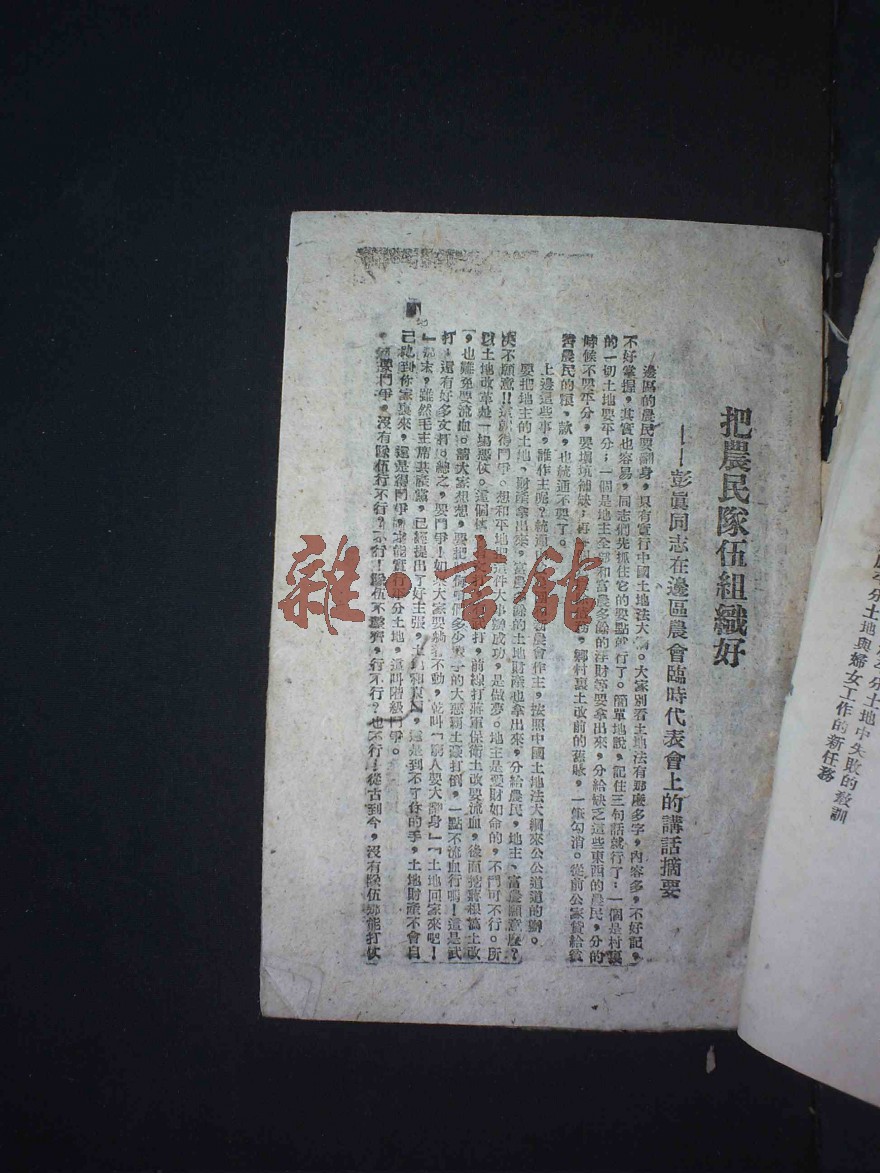 把農民隊伍組織好
——彭眞同志在邊區農會臨時代表會上的講話摘要
邊區的農民要翻身,只有實行中國土地法大綱。大家別看土地法有那麼多字,內容多,不好記,
不好掌握,其實也容易,同志們先抓住它的要點就行了。簡單地說,記住三句話就行了:一個是村裏
的一切土地要平分;一個是地主全部和富農多餘的浮財等要拿出來,分給缺乏這些東西的農民,分的
時候不要平分,要填坑補缺;再 鄉村裏土改前的舊賬,一筆勾消。從前公家貸給貧
苦農民的糧,款,也統通不要了。
上邊這些事,誰作主呢?統通 農會作主,按照中國土地法大綱來公公道道的辦。
要把地主的土地,財產拿出來,富農多餘的土地財產也拿出來,分給農民,地主、富農願意麼?
决不願意!這就得鬥爭。想和平地把這件大事辦成功,是做夢。地主是要財如命的,不鬥可不行。所
以土地改革是一場惡仗。這個仗 打,前線打蔣軍保衛土改要流血,後面挖蔣根搞土改
,也難免要流血。請大家想想,要把 多少 的大惡霸土豪打倒,一點不流血行嗎!這是武
打,還有好多文打。總之,要鬥爭!如果大家要躺着不動,乾叫「窮人要大翻身」「土地回家來吧!
」 末,雖然毛主席共產黨,已經提出了好主張,土地和東西,還是到不了咱的手,土地財產不會自
己跑到你家裏來,還是得鬥爭, 能實行平分土地,這叫階級鬥爭。
鬥爭,沒有隊伍行不行?不行!隊伍不整齊,行不行?也不行!從古到今,沒有隊伍哪能打仗
平分土地中失敗的敎訓
平分土地與婦女工作的新任務
雜·書館